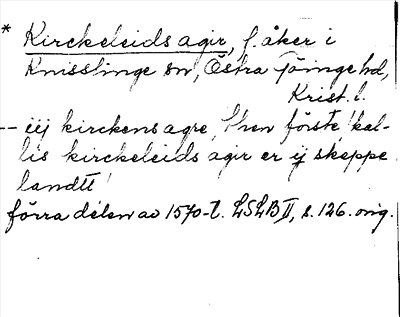 * Kirckeleids agir, f. åker i
Knisslinge sn, Östra Göinge hd,
Krist. l.
-- iiij kirckens agre, 'then förste, kal-
lis kirckeleids agir er ij skeppe
landtt'
förra delen av 1570-t. LSLB II, s. 126. orig.